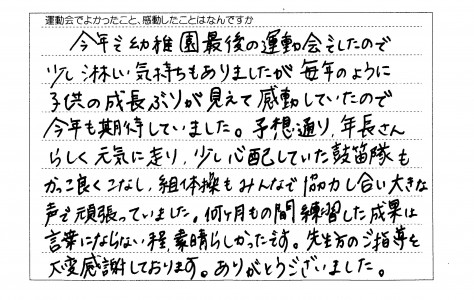 運動会でよかったこと、感動したことはなんですか
今年で幼稚園最後の運動会でしたので
少し淋しい気持ちもありましたが毎年のように
子供の成長ぶりが見えて感動していたので
今年も期待していました。予想通り、年長さん
らしく元気に走り、少し心配していた鼓笛隊も
かっこ良くこなし、組体操もみんなで協力し合い大きな
声で頑張っていました。何ヶ月もの間練習した成果は
言葉にならない程、素晴らしかったです。先生方のご指導を
大変感謝しております。ありがとうございました。